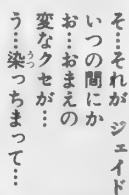 そ…それが ジェイド
いつの間にか
お…おまえの
変なクセが…
う…染っちまって…
うつ